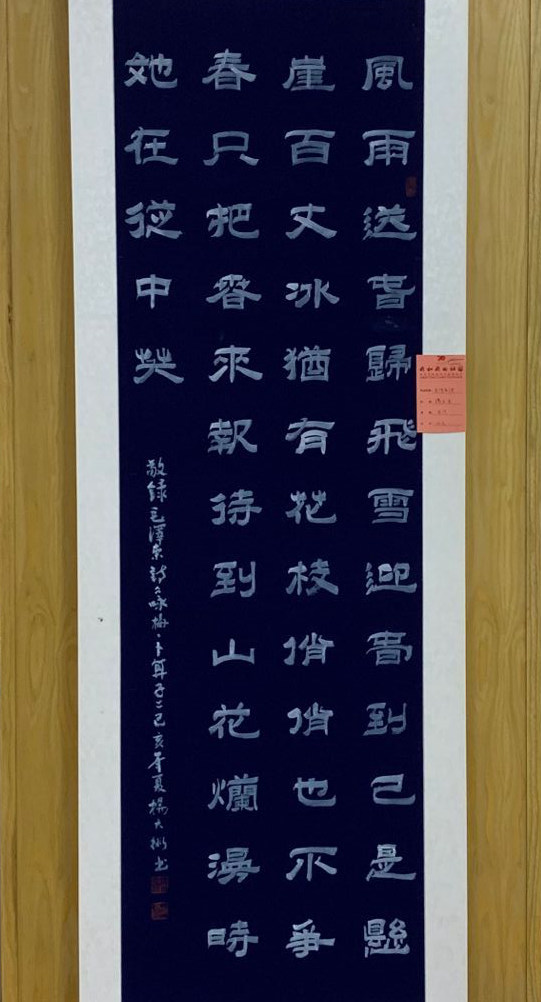 風雨送春歸飛雪迎春到已是懸
崖百丈冰猶有花枝俏俏也不爭
春只把春來報待到山花爛漫時
她在從中笑
敬錄毛澤東詩詞詠梅·卜算子己亥年夏楊大 書